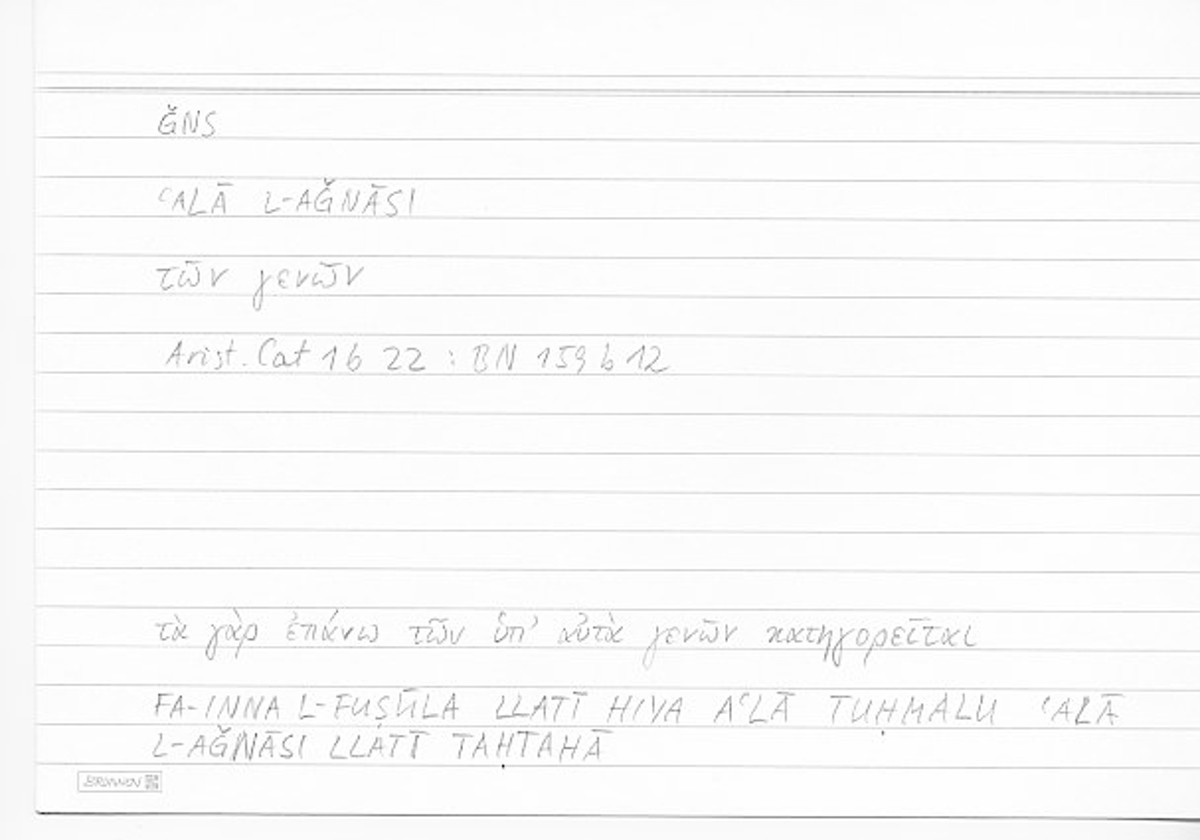 ǦNS
ʿALĀ L-AǦNĀSI
τῶν γενῶν
Arist. Cat 1b 22 : BN 159b 12
τὰ γὰρ ἐπάνω τῶν ὑπ' αὐτὰ γενῶν κατηγορεῖται
FA-INNA L-FUṢŪLA LLATĪ HIYA AʿLĀ TUḤMALU ʿALĀ
L-AǦNĀSI LLATĪ TAḤTAHĀ
BRUNNEN